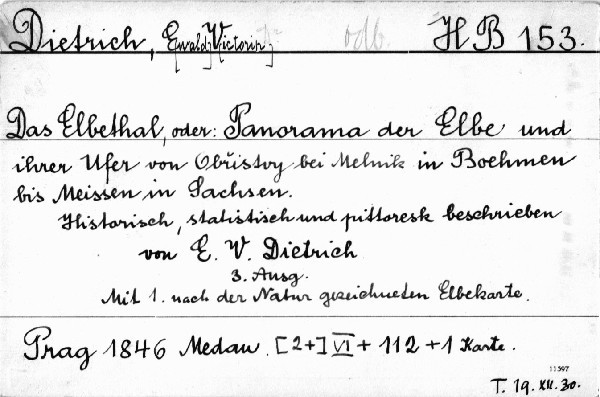 Dietrich, E[wald] V[ictorin] odb. H B 153.
Das Elbethal, oder: Panorama der Elbe und
ihrer Ufer von Obřistvy bei Melnik in Boehmen
bis Meissen in Sachsen.
Historisch, statistisch und pittoresk beschrieben
von E. V. Dietrich
3. Ausg.
Mit 1. nach der Natur gezeichneten Elbekarte.
Prag 1846 Medau. [2+] VI + 112 + 1 Karte.
11597
T. 19. XII. 30.